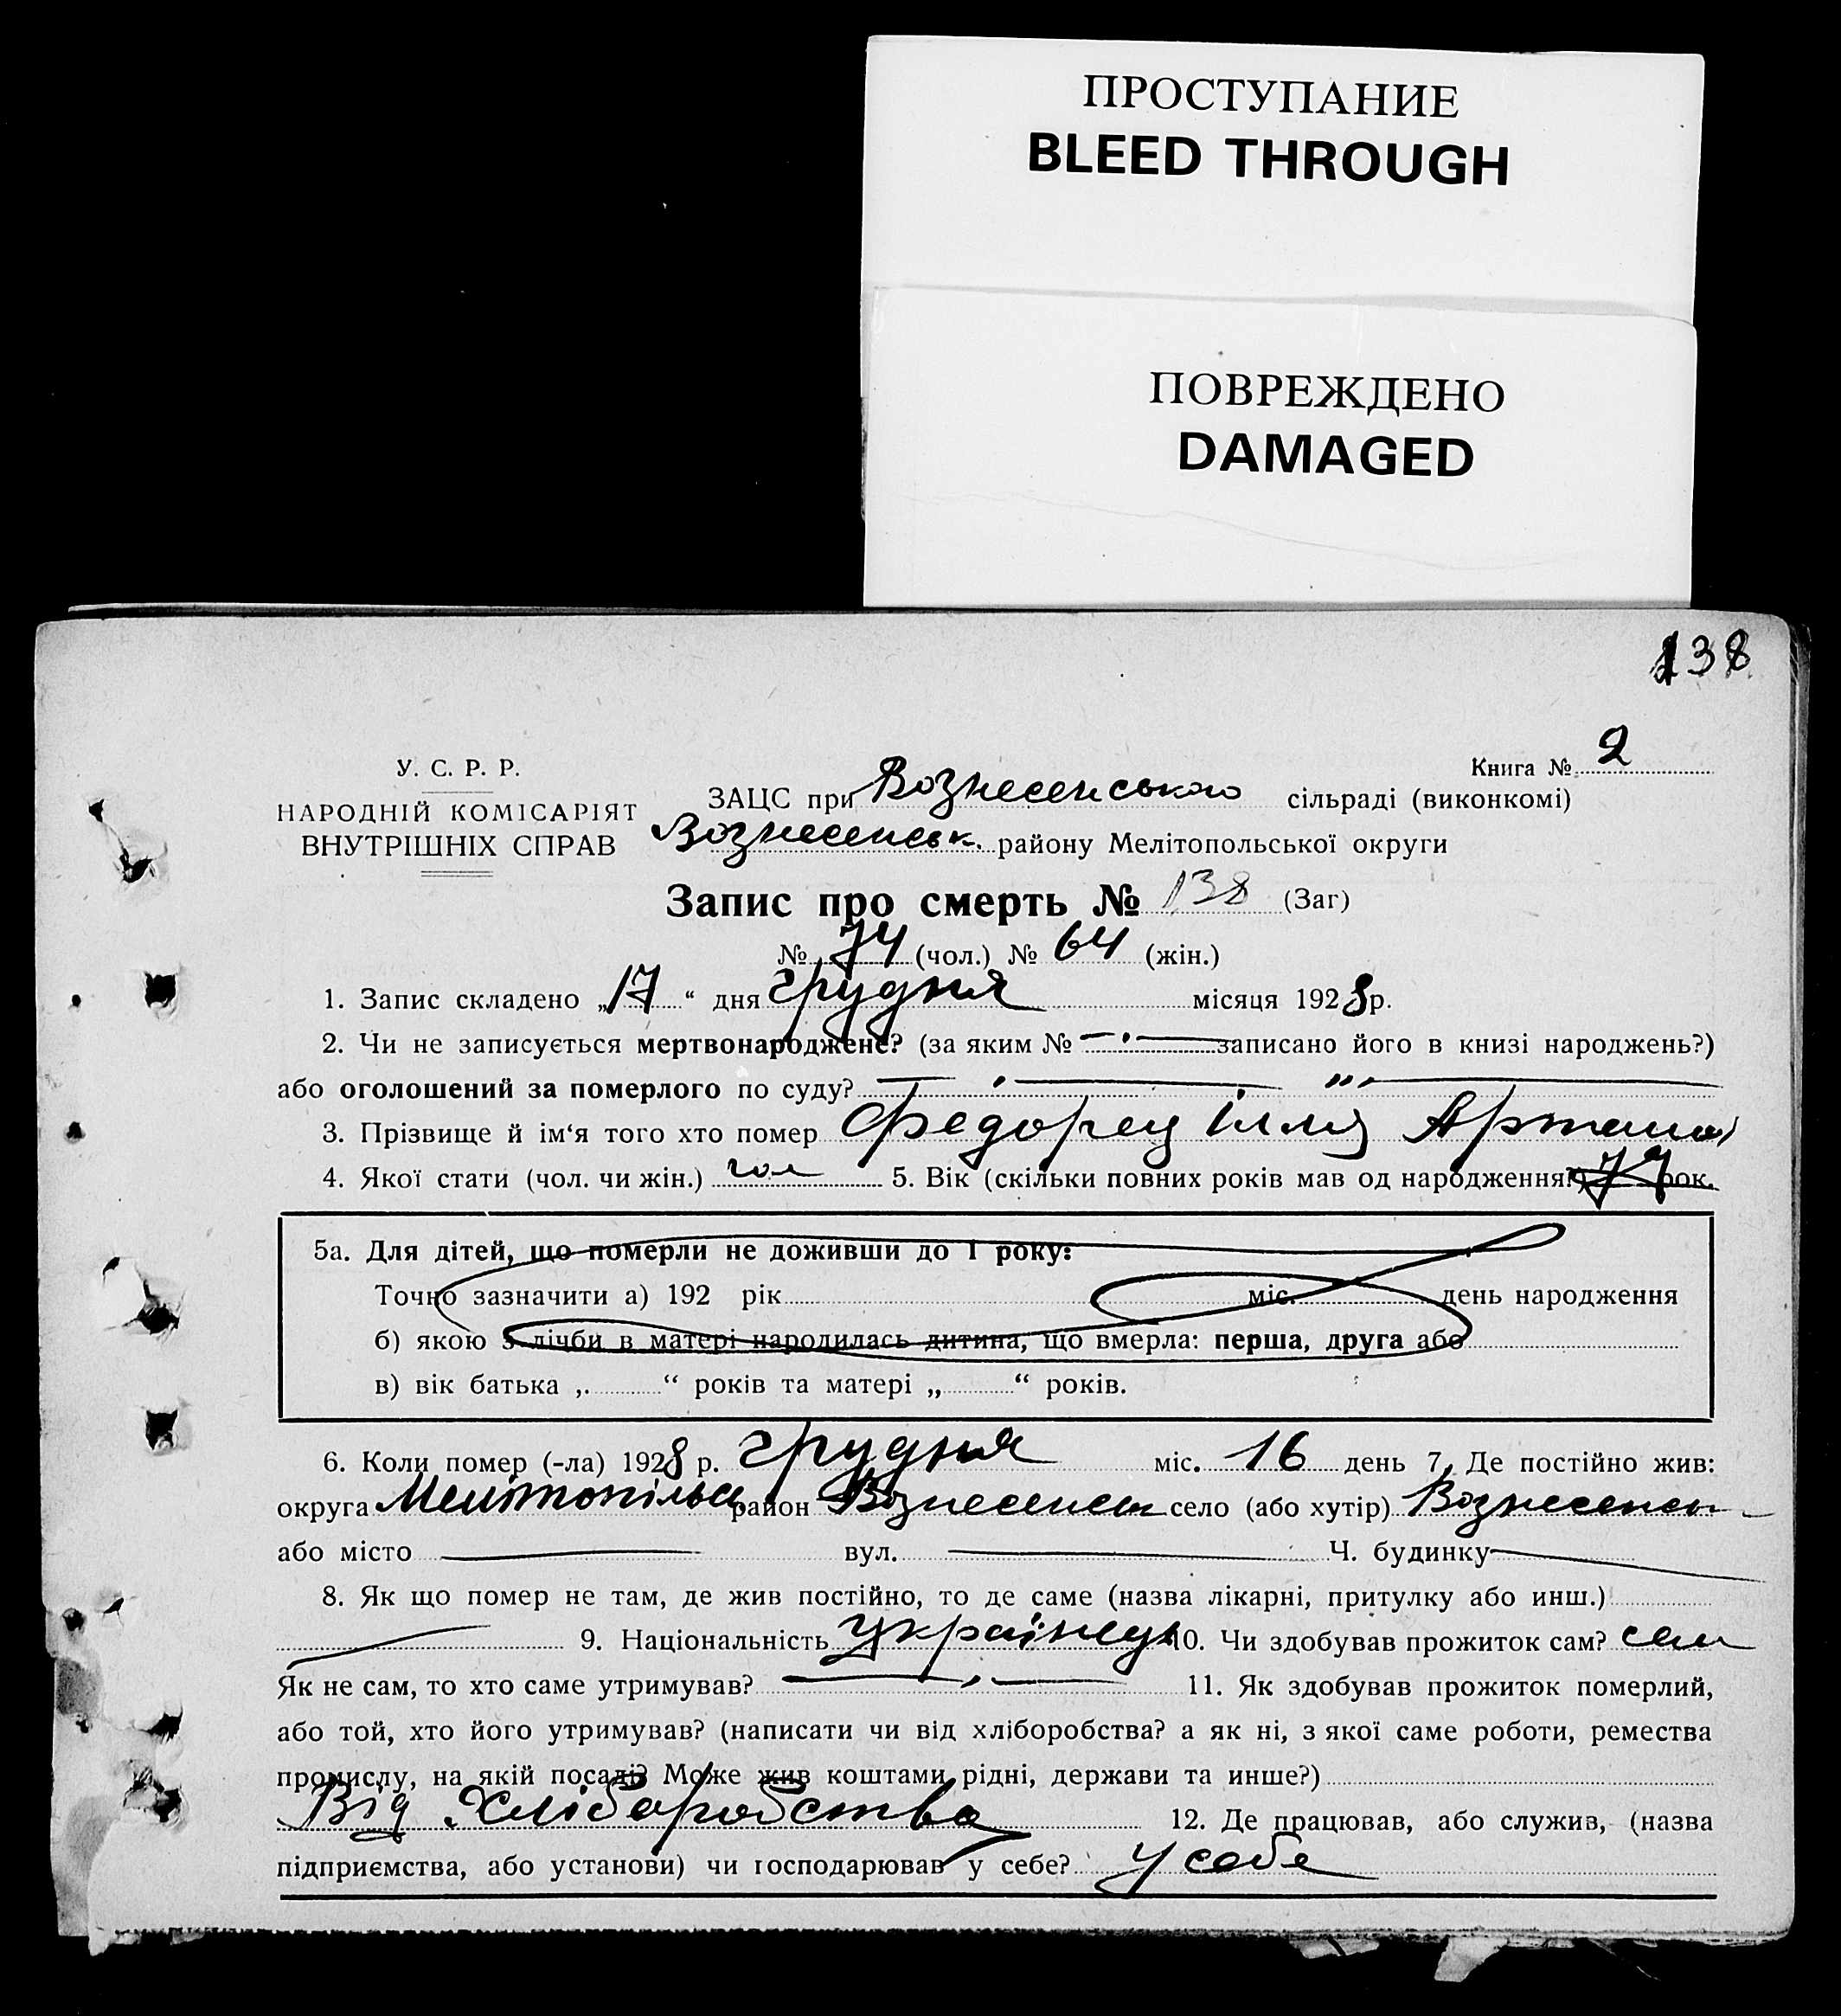 ПРОСТУПАНИЕ
BLEED THROUGH
ПОВРЕЖДЕНО
DAMAGED
138
У. С. Р. Р.
НАРОДНІЙ КОМІСАРІЯТ
ВНУТРІШНІХ СПРАВ
Книга № 2
ЗАЦС при Вознесенського сільраді (виконкомі)
Вознесенськ. району Мелітопольської округи
Запис про смерть № 138 (Заг)
№ 74 (чол.) № 64 (жін.)
1. Запис складено „17“ дня грудня місяця 1928 р.
2. Чи не записується мертвонароджене? (за яким № — записано його в книзі народжень?)
або оголошений за померлого по суду? —
3. Прізвище й ім‘я того хто помер Федорец Ілля
4. Якої стати (чол. чи жін.) чол 5. Вік (скільки повних років мав од народження?) рок.
5а. Для дітей, що померли не доживши до 1 року:
Точно зазначити а) 192 рік міс. день народження
б) якою з лічби в матері народилась дитина, що вмерла: перша, друга або
в) вік батька „ “ років та матері „ “ років.
6. Коли помер (-ла) 1928 р. грудня міс. 16 день 7. Де постійно жив:
округа Мелітопільськ район Вознесенськ село (або хутір) Вознесенськ
або місто — вул. — Ч. будинку —
8. Як що помер не там, де жив постійно, то де саме (назва лікарні, притулку або инш.)
— 9. Національність українець 10. Чи здобував прожиток сам? сам
Як не сам, то хто саме утримував? — 11. Як здобував прожиток померлий,
або той, хто його утримував? (написати чи від хліборобства? а як ні, з якої саме роботи, ремества
промислу, на якій посаді? Може жив коштами рідні, держави та инше?)
Від Хліборобства 12. Де працював, або служив, (назва
підприємства, або установи) чи господарював у себе? у себе